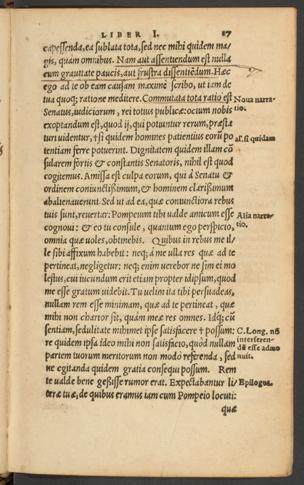 LIBER I. 17
capessenda, ea sublata tota, sed nec mihi quidem ma
gis, quàm omnibus. Nam aut assentiendum est nulla
cum grauitate paucis, aut frustra dissentiēdum. Hæc
ego ad te ob eam causam maximè scribo, ut iam de
tua quoq; ratione meditere. Commutata tota ratio est
Noua narra-
tio.
Senatus, iudiciorum, rei totius publicæ: ocium nobis
exoptandum est, quod ij, qui potiuntur rerum, præsta
turi uidentur, †si quidam homines patientius eorū po
al. si quidam
tentiam ferre potuerint. Dignitatem quidem illam cō
sularem fortis & constantis Senatoris, nihil est quod
cogitemus. Amissa est culpa eorum, qui à Senatu &
ordinem coniunctissimum, & hominem clarissimum
abalienauerunt. Sed ut ad ea, quæ coniunctiora rebus
tuis sunt, reuertar: Pompeium tibi ualde amicum esse
Alia narra-
tio.
cognoui: & eo tu consule, quantum ego perspicio,
omnia quæ uoles, obtinebis. Quibus in rebus me il/
le sibi affixum habebit: neq; à me ulla res quæ ad te
pertineat, negligetur: neq; enim uerebor ne sim ei mo
lestus, cui iucundum erit etiam propter idipsum, quod
me esse gratum uidebit. Tu uelim ita tibi persuadeas,
nullam rem esse minimam, quæ ad te pertineat, quæ
mihi non charior sit, quàm meæ res omnes. Idq; cū
sentiam, sedulitate mihimet ipse satisfacere † possum:
C. Long. nō
re quidem ipsa ideo mihi non satisfacio, quòd nullam
interseren-
dū esse admo
partem tuorum meritorum non modò referenda, sed
nuit.
ne cogitanda quidem gratia consequi possum. Rem
te ualde bene gessisse rumor erat. Expectabantur li/
Epilogus.
teræ tuæ, de quibus eramus iam cum Pompeio locuti:
quæ